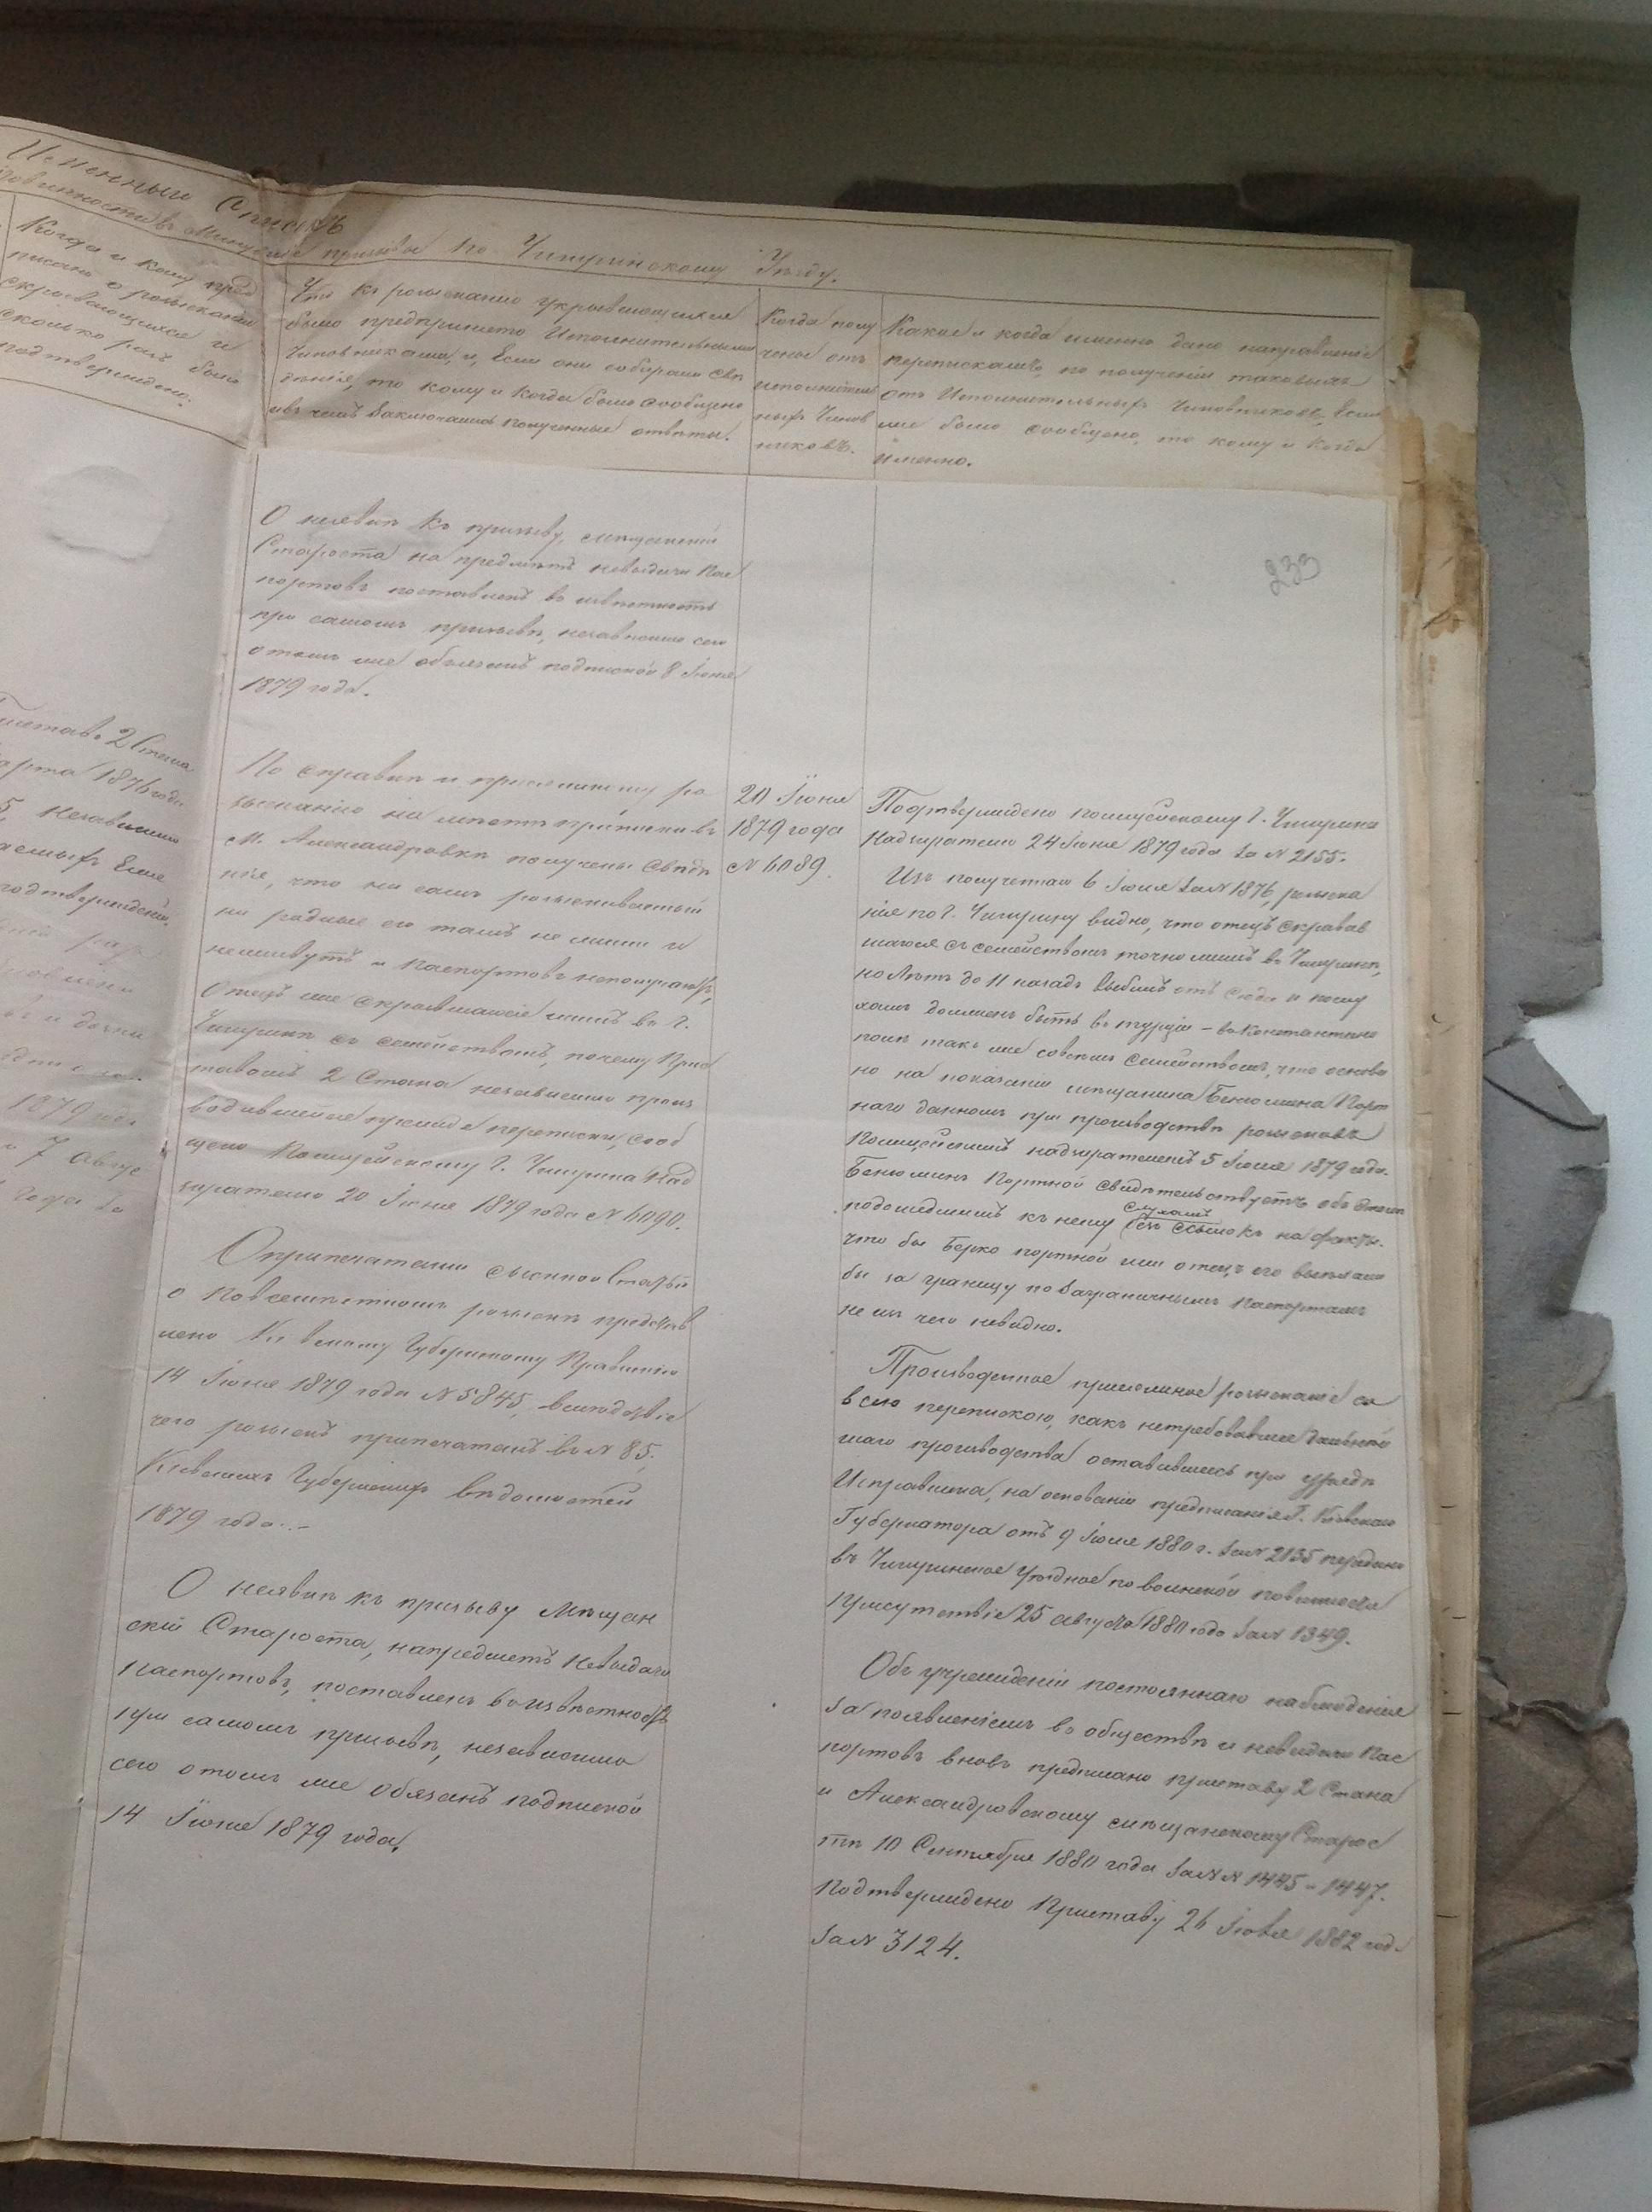 Именный Списокъ
повинности въ минувшіе призывы по Чигиринскому Уѣзду.
Когда и кому пред
писано о розысканіи
скрывающихся и
сколько разъ было
подтверждено.
Что къ розысканію укрывающихся
было предпринято Исполнительными
Чиновниками, и, Если они собирали свѣ
дѣнія, то кому и когда было сообщено
и въ чемъ Заключались полученные отвѣты.
Когда полу
чены отъ
исполнитель
ныхъ Чинов
никовъ.
Какое и когда именно дано направленіе
перепискамъ, по полученіи таковыхъ
отъ Исполнительныхъ Чиновниковъ, Если
же было сообщено, то кому и когда
Именно.
233
О неявкѣ къ призыву, мѣщанскій
Староста на предметъ невыдачи Пас
портовъ поставленъ въ извѣстность
при самомъ призывѣ, независимо сего
о томъ же обязанъ подпиской 8 Іюня
1879 года.
2 Стана
марта 1876 года
5, Независимо
Еще
подтверждено
1879 года
и 7 Авгус
года за
По справкѣ и приложенному ро
зысканію на мѣстѣ приписки въ
М. Александровкѣ получены Свѣдѣ
нія, что ни самъ розыскиваемый
ни родные его тамъ не жили и
неживутъ и Паспортовъ неполучаютъ,
Отецъ же скрывшагося жилъ въ г.
Чигиринѣ съ семействомъ, почему Прис
тавомъ 2 Стана независимо произ
водившейся прежде переписки, сооб
щено Полицейскому г. Чигирина Над
зирателю 20 Іюня 1879 года № 6090.
Оприпечатаніи сыскной Статьи
о Повсемѣстномъ розыскѣ представ
лено Кіевскому Губернскому Правленію
14 Іюня 1879 года № 5845, вслѣдствіе
чего розыскъ припечатанъ въ № 85,
Кіевскихъ Губернскихъ Вѣдомостей
1879 года.
О неявкѣ къ призыву Мѣщан
скій Староста, напредметъ невыдачи
Паспортовъ, поставленъ въ извѣстность
при самомъ призывѣ, независимо
сего отомъ же обязанъ подпиской
14 Іюня 1879 года.
20 Іюня
1879 года
№ 6089.
Подтверждено полицейскому г. Чигирина
Надзирателю 24 Іюня 1879 года за № 2155.
Изъ полученнаго 6 Іюля за № 1876, розыска
нія по г. Чигирину видно, что отецъ скрывав
шагося съ семействомъ точно жилъ въ Чигиринѣ,
но лѣтъ до 11 назадъ выбылъ отъ сюда и по слу
хамъ долженъ быть въ турціи – въ Константино
полѣ такъ же совсѣмъ семействомъ, что основа
но на показаніи мѣщанина Бенюмина Порт
наго данномъ при производствѣ розысковъ
Полицейскимъ надзирателемъ 5 Іюля 1879 года.
Бенюминъ Портной свидѣтельствуетъ объ этомъ
подошедшимъ къ нему слухамъ безъ ссылокъ на факты.
что бы Берко портной или отецъ его выѣхали
бы за границу по Заграничнымъ Паспортамъ
не изъ чего невидно.
Произведенное розысканіе со
всею перепискою, какъ нетребовавшее дальнѣй
шаго производства оставившись при
Исправника, на основаніи предписанія Г. Кіевскаго
Губернатора отъ 9 Іюля 1880 г. за № 2155 передано
въ Чигиринское Уѣздное по воинской повинности
присутствіе 25 августа 1880 года за № 1349.
Объ учрежденіи постояннаго наблюденія
за появленіемъ въ обществѣ и невыдачи Пас
портовъ вновь предписано приставу 2 Стана
и Александровскому мѣщанскому Старос
тѣ 10 Сентября 1880 года за №№ 1445 – 1447.
Подтверждено Приставу 26 1882 года
за № 3124.